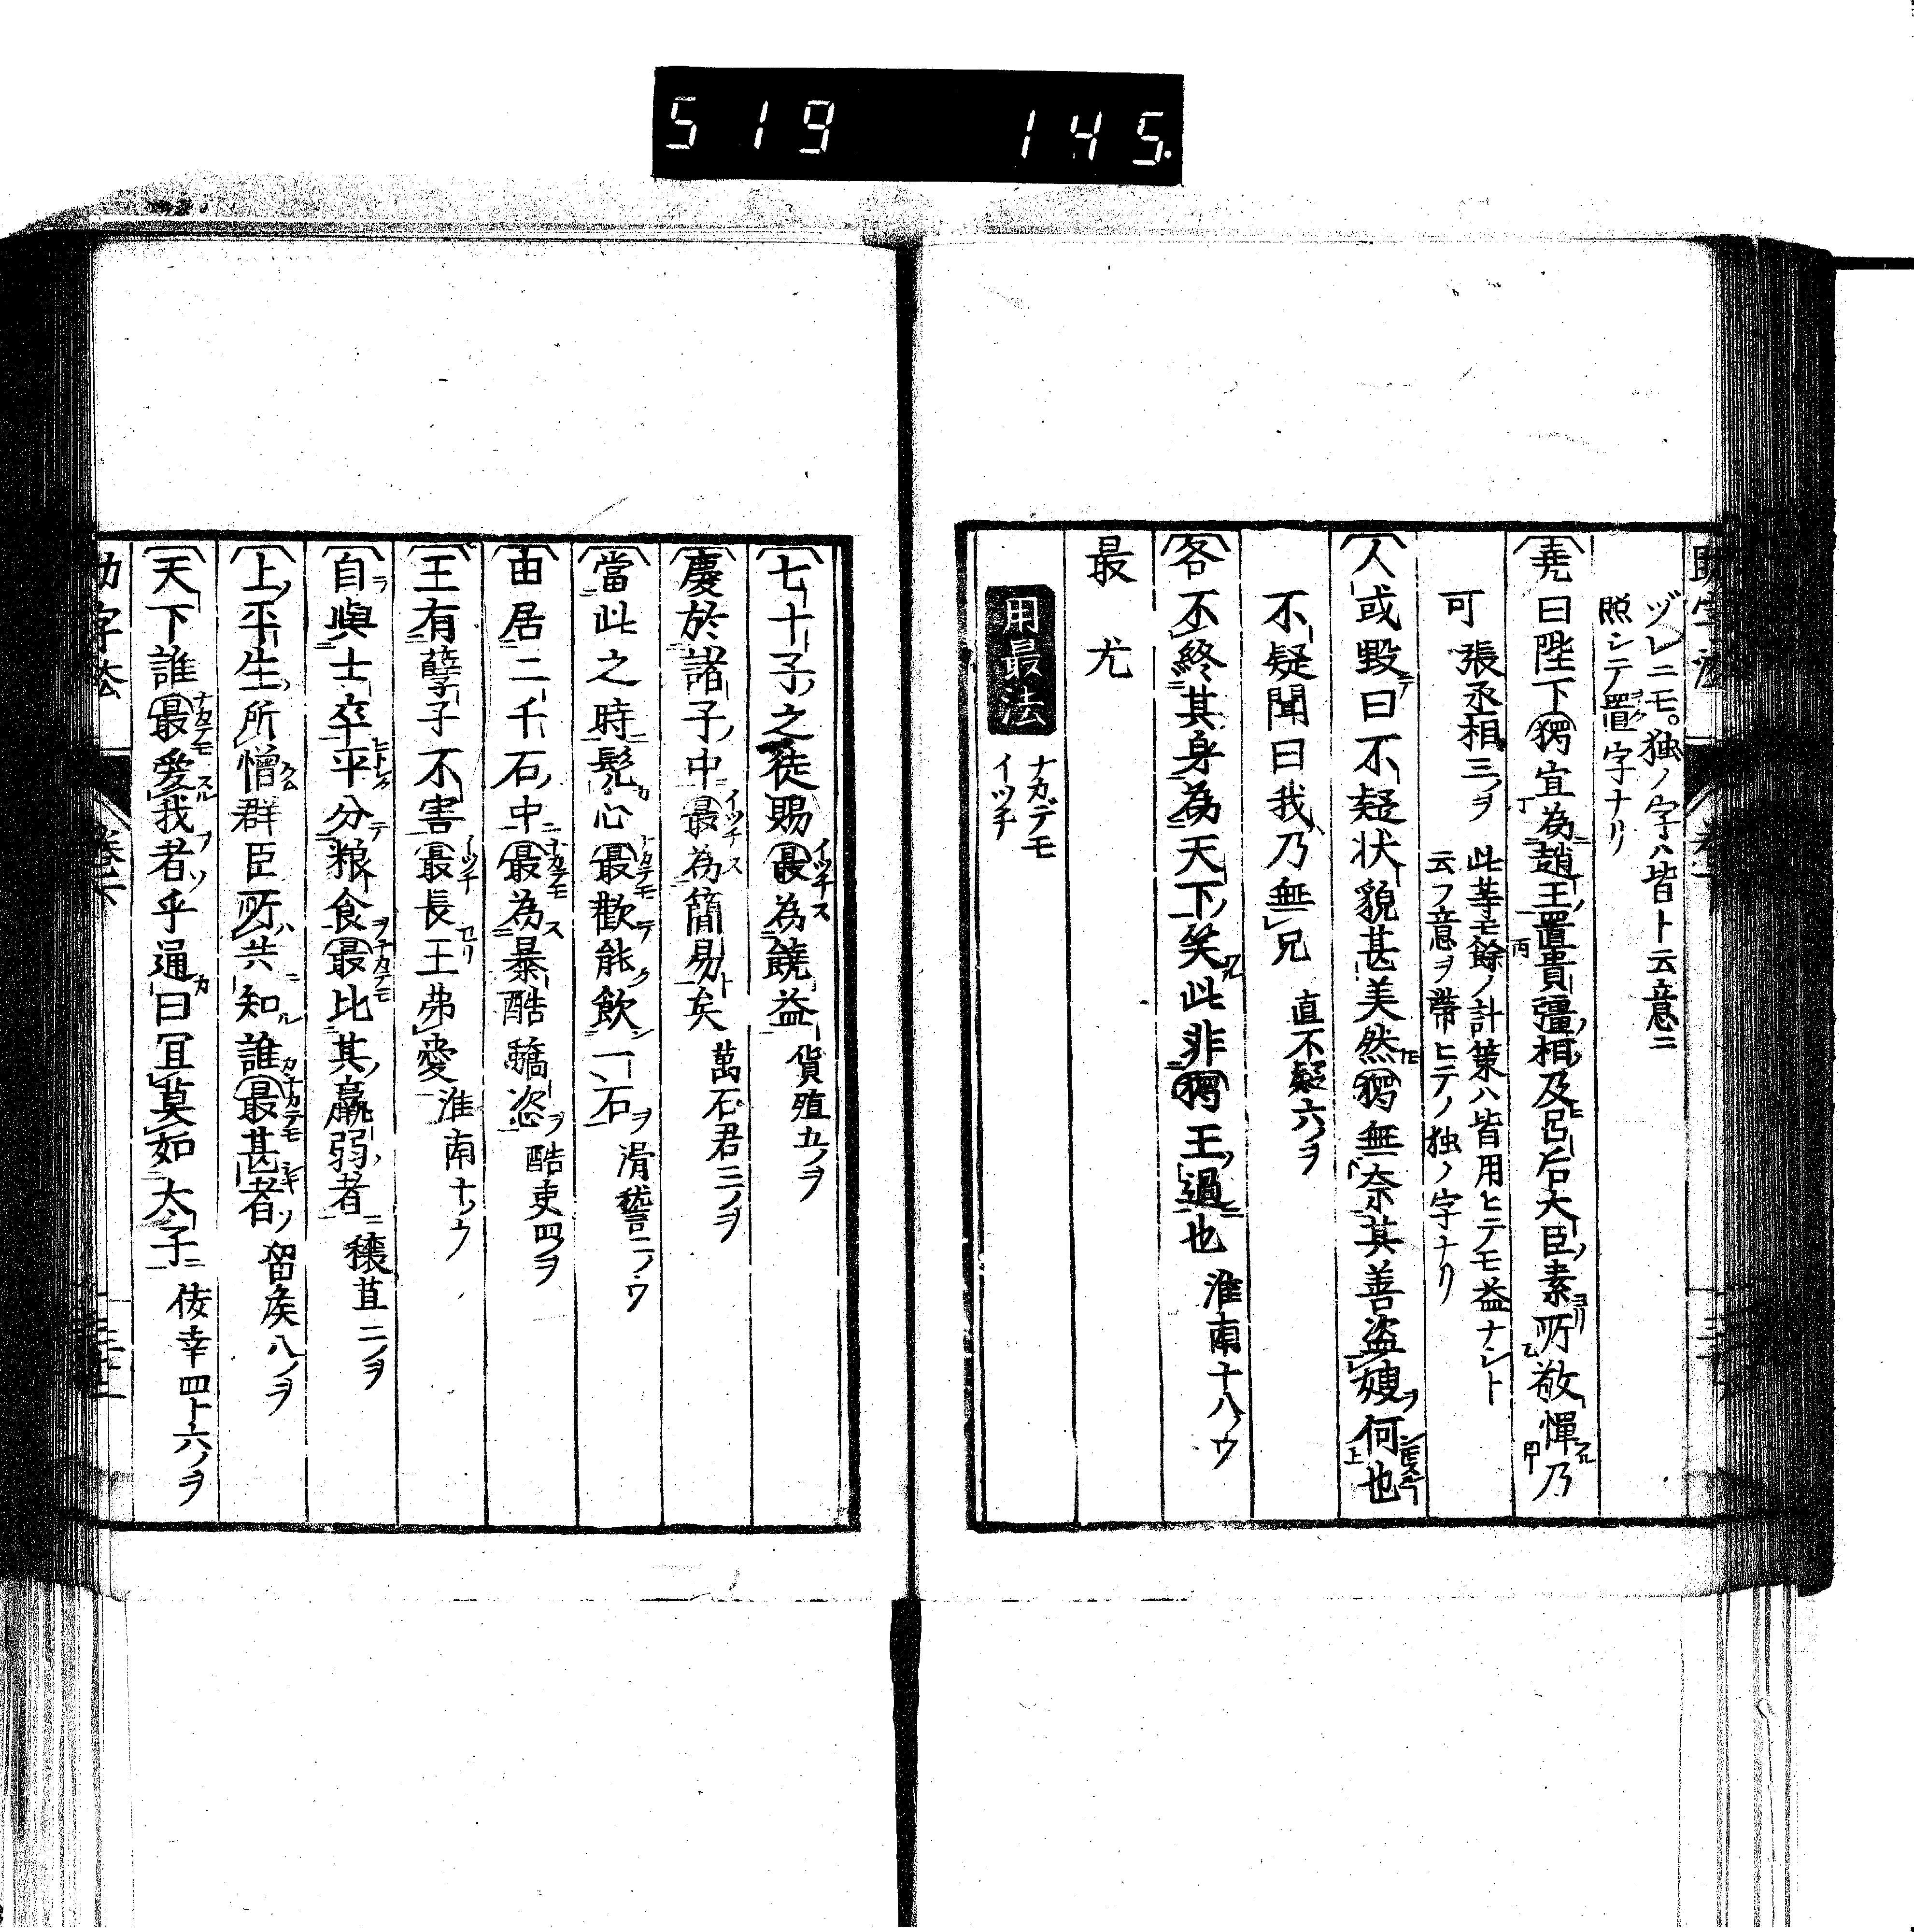 519 145.
ヅレニモ。独ノ字ハ皆ト云意ニ
照シテ置ク字ナリ
堯曰陛下獨宜為趙王置貴彊相及呂后大臣素所敬憚乃
可 張丞相三ノヲ 此等モ餘ノ計策ハ皆用ヒテモ益ナシト
云フ意ヲ帶ヒテノ独ノ字ナリ
人或毀曰不疑状貌甚美然獨無奈其善盗嫂何也
不疑聞曰我乃無兄 直不疑六ノヲ
各不終其身為天下笑此非獨王過也 淮南十八ノウ
最 尤
用最法 ナカデモ イツチ
七十子之徒賜最為饒益 貨殖五ノヲ
慶於諸子中最為簡易矣 萬石君三ノヲ
當此之時髡心最歡能飲一石 滑稽二ノウ
由居二千石中最為暴酷驕恣 酷吏四ノヲ
王有孽子不害最長王弗愛 淮南十ノウ
自與士卒平分粮食最比其羸弱者 穰苴二ノヲ
上平生所憎群臣所共知誰最甚者 留矦八ノヲ
天下誰最愛我者乎通曰冝莫如太子 佞幸四ト六ノヲ